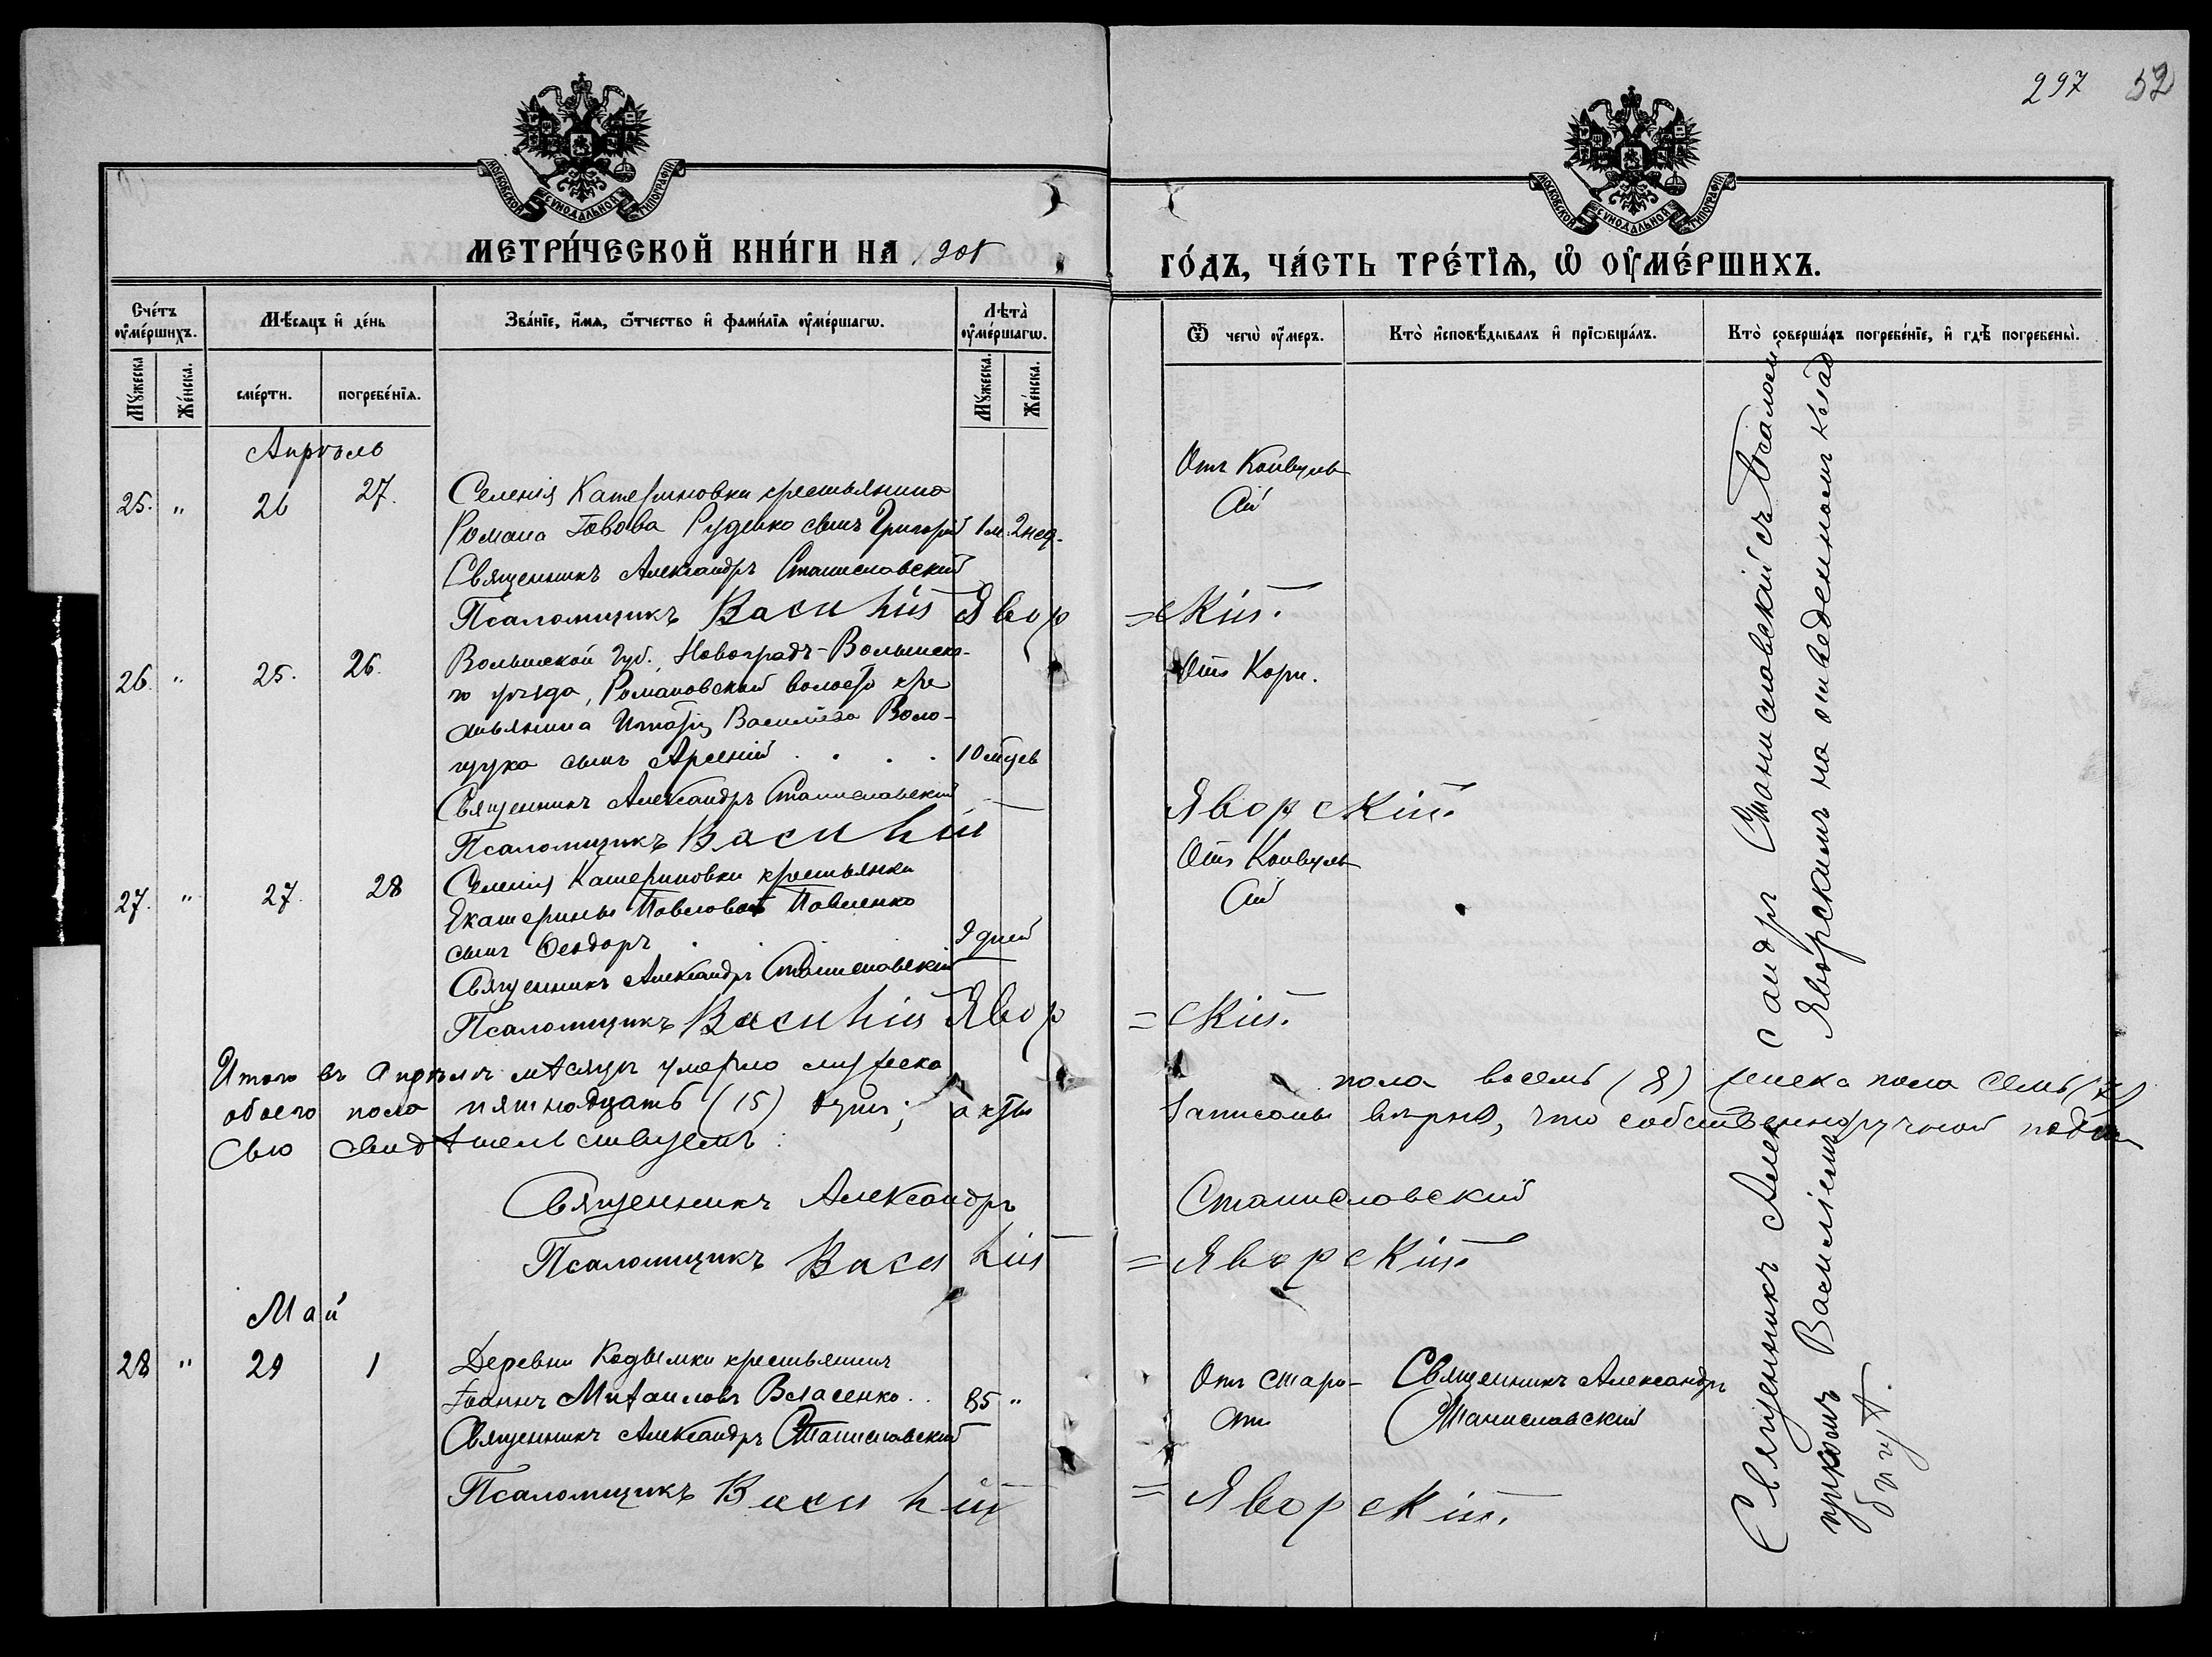 297 52
МОСКОВСКОЙ СѴНОДАЛЬНОЙ ТИПОГРАФІИ
МОСКОВСКОЙ СѴНОДАЛЬНОЙ ТИПОГРАФІИ
МЕТРИ́ЧЕСКОЙ КНИ́ГИ НА 1901
ГО́ДЪ, ЧА́СТЬ ТРЕ́ТІѦ, Ѡ҆ ОУ҆МЕ́РШИХЪ.
Сче́тъ оу҆ме́ршихъ.
Мѣ́сяцъ и҆ де́нь
Зва́нїе, и҆́мѧ, ѻ҆́тчество и҆ фами́лїѧ оу҆ме́ршагѡ.
Лѣта̀ оу҆ме́ршагѡ.
Ѿ чегѡ̀ оу҆́меръ.
Кто̀ и҆сповѣ́дывалъ и҆ прїѡбща́лъ.
Кто̀ соверша́лъ погребе́нїе, и҆ гдѣ̀ погребены̀.
Му́жеска
Же́нска.
сме́рти.
погребе́нїѧ.
Му́жеска.
Же́нска.
Апрѣль
25. " 26 27. Селенія Катериновки крестьянина
Романа Іовова Руденко сынъ Григорій 1 м. 2 нед.
Отъ Конвульсій
Священникъ Александръ Станиславскій
Псаломщикъ Василій Явор=скій.
26. " 25. 26. Волынской Губ., Новоградъ-Волынска-
го уѣзда, Романовской волости кре
стьянина Игнатія Васильева Воло-
щука сынъ Арсеній . . . . 10 мѣсяцевъ
Отъ Кори.
Священникъ Александръ Станиславскій
Псаломщикъ Василій Яворскій.
27. " 27. 28 Селенія Катериновки крестьянки
Екатерины Павловой Павленко
сынъ Ѳеодоръ . . 9 дней
Отъ Конвульсій
Священникъ Александръ Станиславскій
Псаломщикъ Василій Явор=скій.
Итого въ Апрѣлѣ мѣсяцѣ умерло мужеска пола восемь (8) женска пола семь (7)
обоего пола пятнадцать (15) душъ; акты записаны вѣрно, что собственноручной подпи
сью свидѣтельствуемъ:
Священникъ Александръ Станиславскій
Псаломщикъ Василій =Яворскій.
Май
28 " 29 1 Деревни Кодымки крестьянинъ
Іоаннъ Михаиловъ Власенко . . 85 "
Отъ старости
Священникъ Александръ
Станиславскій
Священникъ Александръ Станиславскій
Псаломщикъ Василій =Яворскій.
Священникъ Александръ Станиславскій съ Псаломщикомъ Василіемъ Яворскимъ на отведенномъ кладбищѣ.